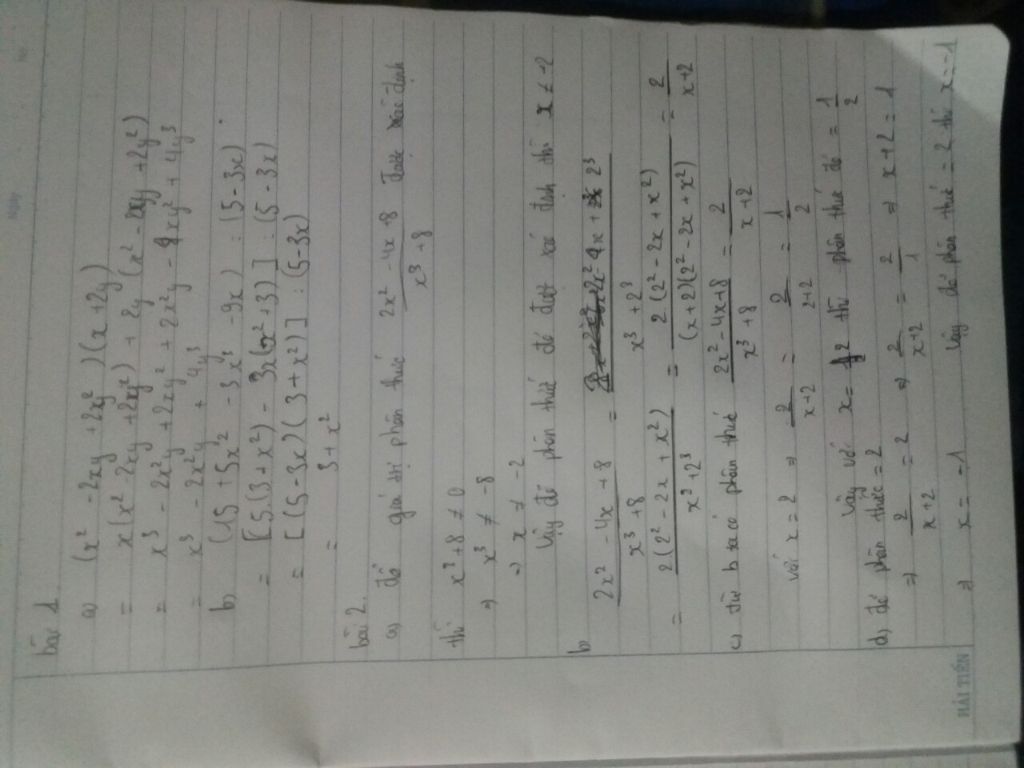 Ngày
No
bài 1
a) (x² - 2xy + 2y²)(x + 2y)
= x(x² - 2xy + 2y²) + 2y (x² - 2xy + 2y²)
= x³ - 2x²y + 2xy² + 2x²y - 4xy² + 4y³
= x³ - 2x²y + 4y³
b) (15 + 5x² - 3x³ - 9x) : (5 - 3x)
= [5(3 + x²) - 3x(x² + 3)] : (5 - 3x)
= [(5 - 3x)(3 + x²)] : (5 - 3x)
= 3 + x²
bài 2
a) để giá trị phân thức 2x² - 4x + 8 / x³ + 8 được xác định
thì x³ + 8 ≠ 0
⇒ x³ ≠ -8
⇒ x ≠ -2
Vậy để phân thức đó được xác định thì x ≠ -2
b) 2x² - 4x + 8 / x³ + 8 = 2x² - 4x + 2³ / x³ + 2³
= 2(2² - 2x + x²) / x³ + 2³ = 2(2² - 2x + x²) / (x + 2)(2² - 2x + x²) = 2 / x + 2
c) từ b ta có phân thức 2x² - 4x + 8 / x³ + 8 = 2 / x + 2
với x = 2 ⇒ 2 / x + 2 = 2 / 2 + 2 = 1 / 2
Vậy với x = 2 thì phân thức đó = 1 / 2
d) để phân thức = 2
⇒ 2 / x + 2 = 2 ⇒ 2 / x + 2 = 2 / 1 ⇒ x + 2 = 1
⇒ x = -1 Vậy để phân thức = 2 thì x = -1
HẢI TIẾN